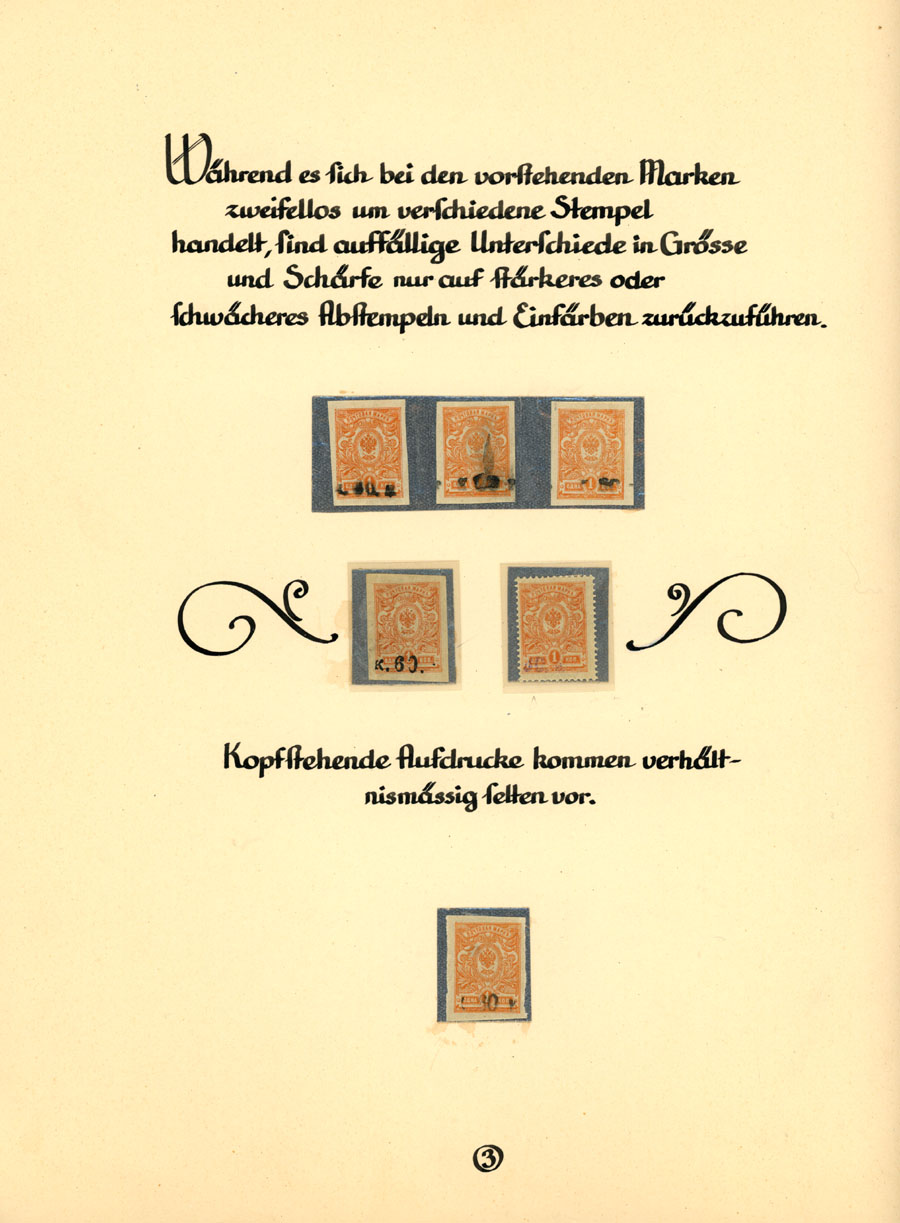 Während es sich bei den vorstehenden Marken
zweifellos um verschiedene Stempel
handelt, sind auffällige Unterschiede in Grösse
und Schärfe nur auf stärkeres oder
schwächeres Abstempeln und Einfärben zurückzuführen.
к. 60.
Kopfstehende Aufdrucke kommen verhält-
nismässig selten vor.
3